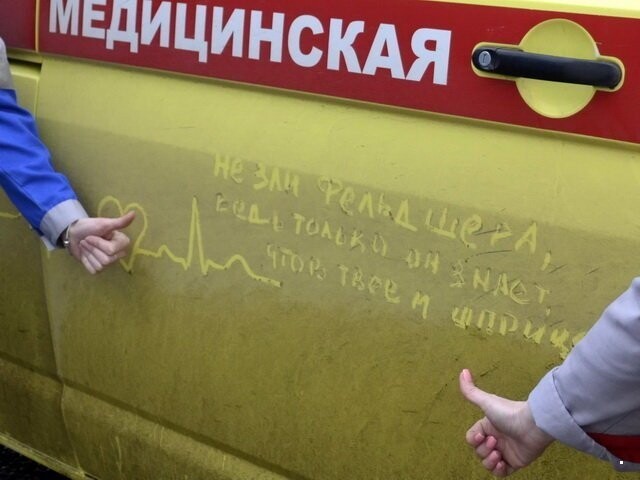 МЕДИЦИНСКАЯ
НЕ ЗЛИ ФЕЛЬДШЕРА,
ВЕДЬ ТОЛЬКО ОН ЗНАЕТ,
ЧТО В ТВОЕМ ШПРИЦЕ